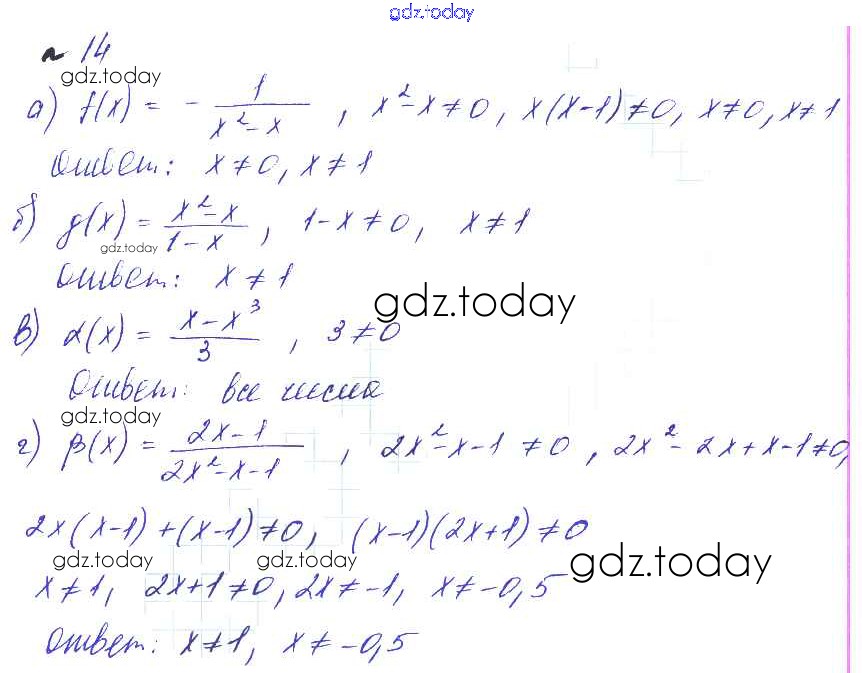 gdz.today
№ 14
gdz.today
а) f(x) = - 1/(x² - x), x² - x ≠ 0, x(x-1) ≠ 0, x ≠ 0, x ≠ 1
Ответ: x ≠ 0, x ≠ 1
б) g(x) = (x² - x)/(1 - x), 1 - x ≠ 0, x ≠ 1
gdz.today
Ответ: x ≠ 1
gdz.today
в) α(x) = (x - x³)/3, 3 ≠ 0
Ответ: все числа
gdz.today
г) β(x) = (2x - 1)/(2x² - x - 1), 2x² - x - 1 ≠ 0, 2x² - 2x + x - 1 ≠ 0,
2x(x-1) + (x-1) ≠ 0, (x-1)(2x+1) ≠ 0
gdz.today gdz.today gdz.today
x ≠ 1, 2x + 1 ≠ 0, 2x ≠ -1, x ≠ -0,5
Ответ: x ≠ 1, x ≠ -0,5